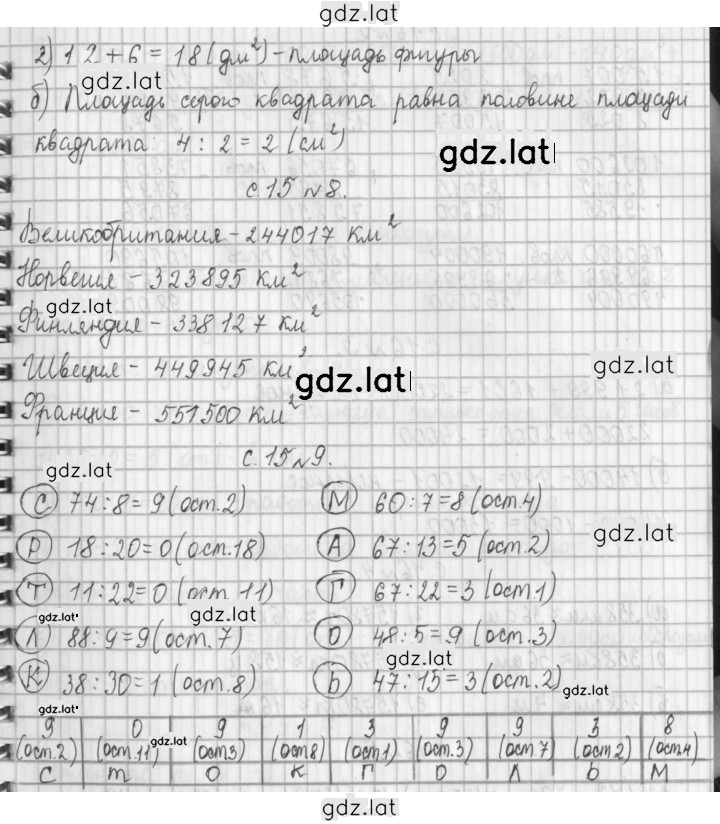 gdz.lat
г) 12 + 6 = 18 (дм²) - площадь фигуры
gdz.lat
б) Площадь серого квадрата равна половине площади
квадрата: 4 : 2 = 2 (см²)
gdz.lat
с. 15 №8.
Великобритания - 244017 км²
Норвегия - 323895 км²
gdz.lat
Финляндия - 338127 км²
Швеция - 449945 км²
gdz.lat
gdz.lat
Франция - 551500 км²
с. 15 №9.
gdz.lat
С 74 : 8 = 9 (ост. 2) М 60 : 7 = 8 (ост. 4)
gdz.lat
Р 18 : 20 = 0 (ост. 18) А 67 : 13 = 5 (ост. 2)
Т 11 : 22 = 0 (ост. 11) Г 67 : 22 = 3 (ост. 1)
gdz.lat gdz.lat
Л 88 : 9 = 9 (ост. 7) О 48 : 5 = 9 (ост. 3)
gdz.lat
К 38 : 30 = 1 (ост. 8) Ь 47 : 15 = 3 (ост. 2)
gdz.lat
gdz.lat
9 0 9 1 3 9 9 3 8
(ост. 2) (ост. 11) (ост. 3) (ост. 8) (ост. 1) (ост. 3) (ост. 7) (ост. 2) (ост. 4)
gdz.lat
С т О К Г О Л Ь М
gdz.lat